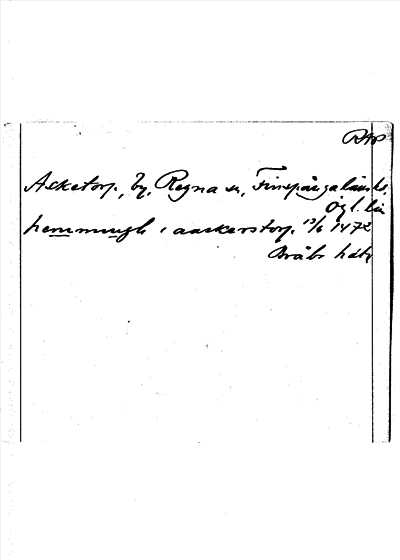 RAP
Asketorp, by, Regna sn, Finspångaläns hd.
Ögl. län
hemmingh i aaskerstorp 13/6 1472
Bråbo hdtg